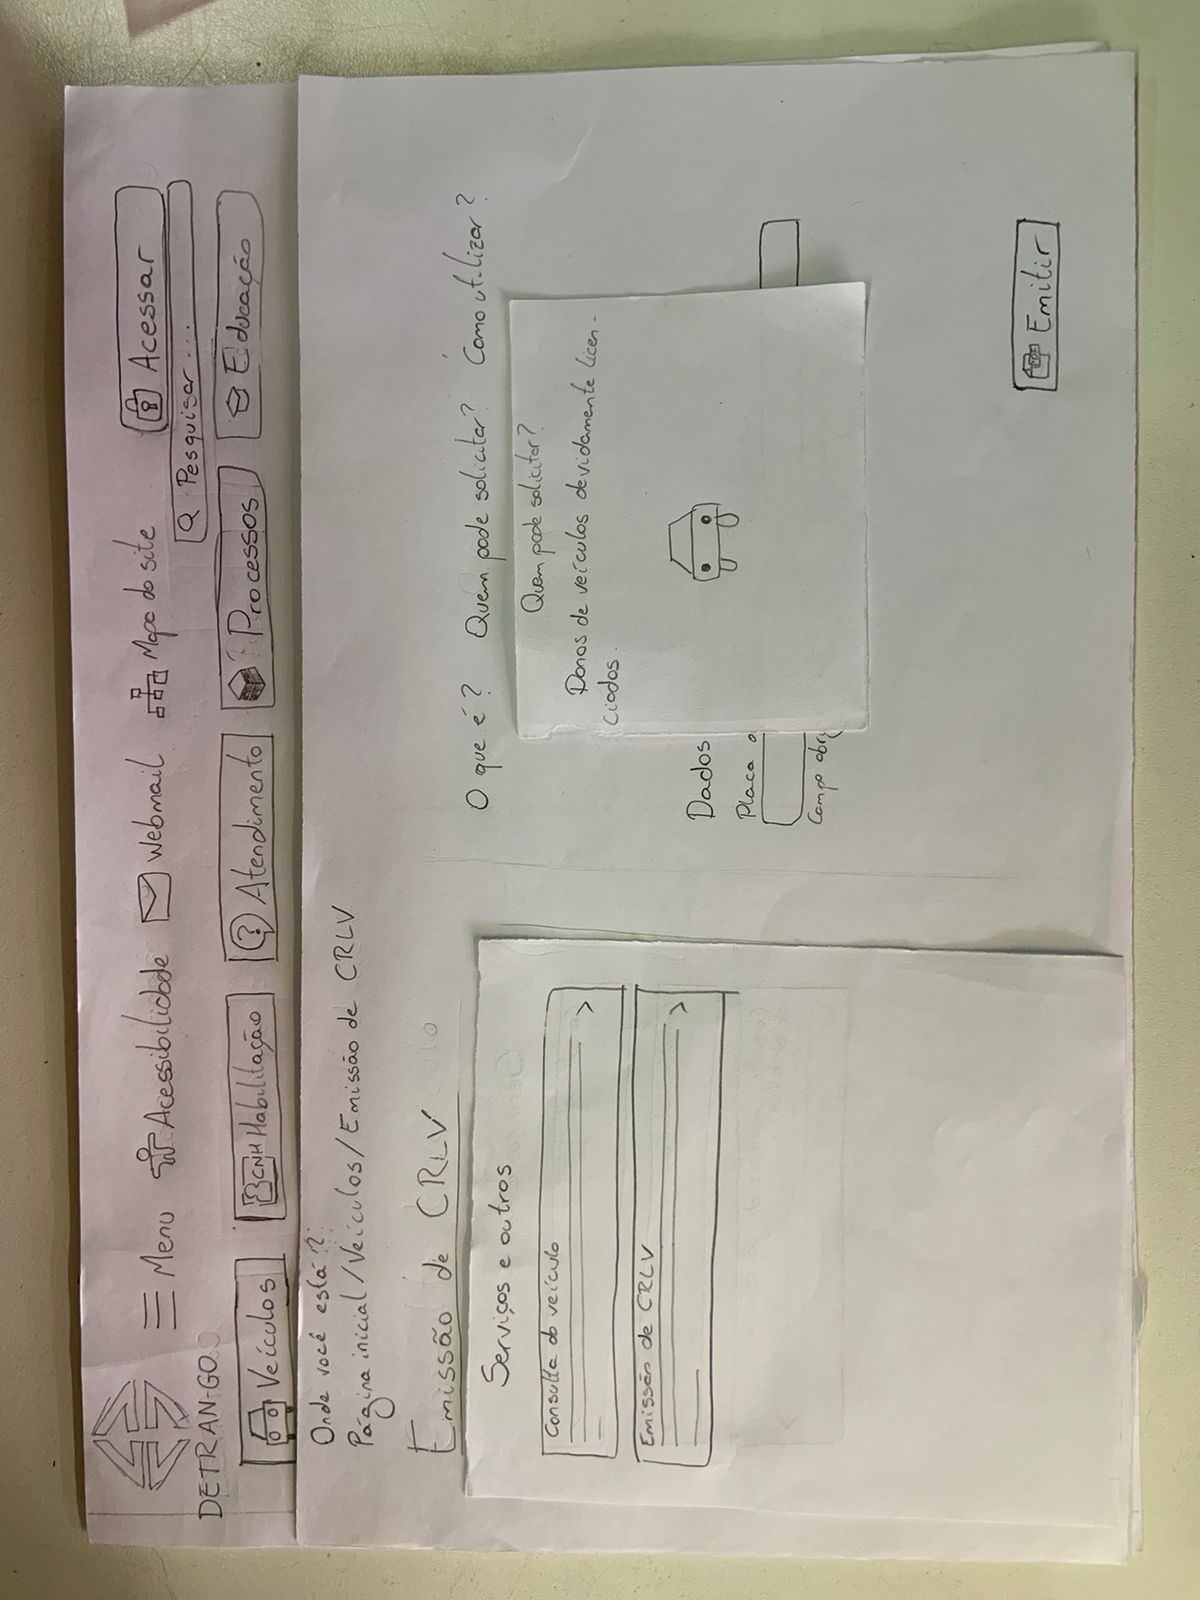 Menu
Acessibilidade
Webmail
Mapa do site
Acessar
Pesquisar ...
DETRAN-GO
Veículos
CNH Habilitação
? Atendimento
Processos
Educação
Onde você está?
Página inicial / Veículos / Emissão de CRLV
Emissão de CRLV
Serviços e outros
Consulta do veículo
>
Emissão de CRLV
>
O que é? Quem pode solicitar? Como utilizar?
Quem pode solicitar?
Donos de veículos devidamente licen-
ciados.
Dados
Placa
Campo
Emitir